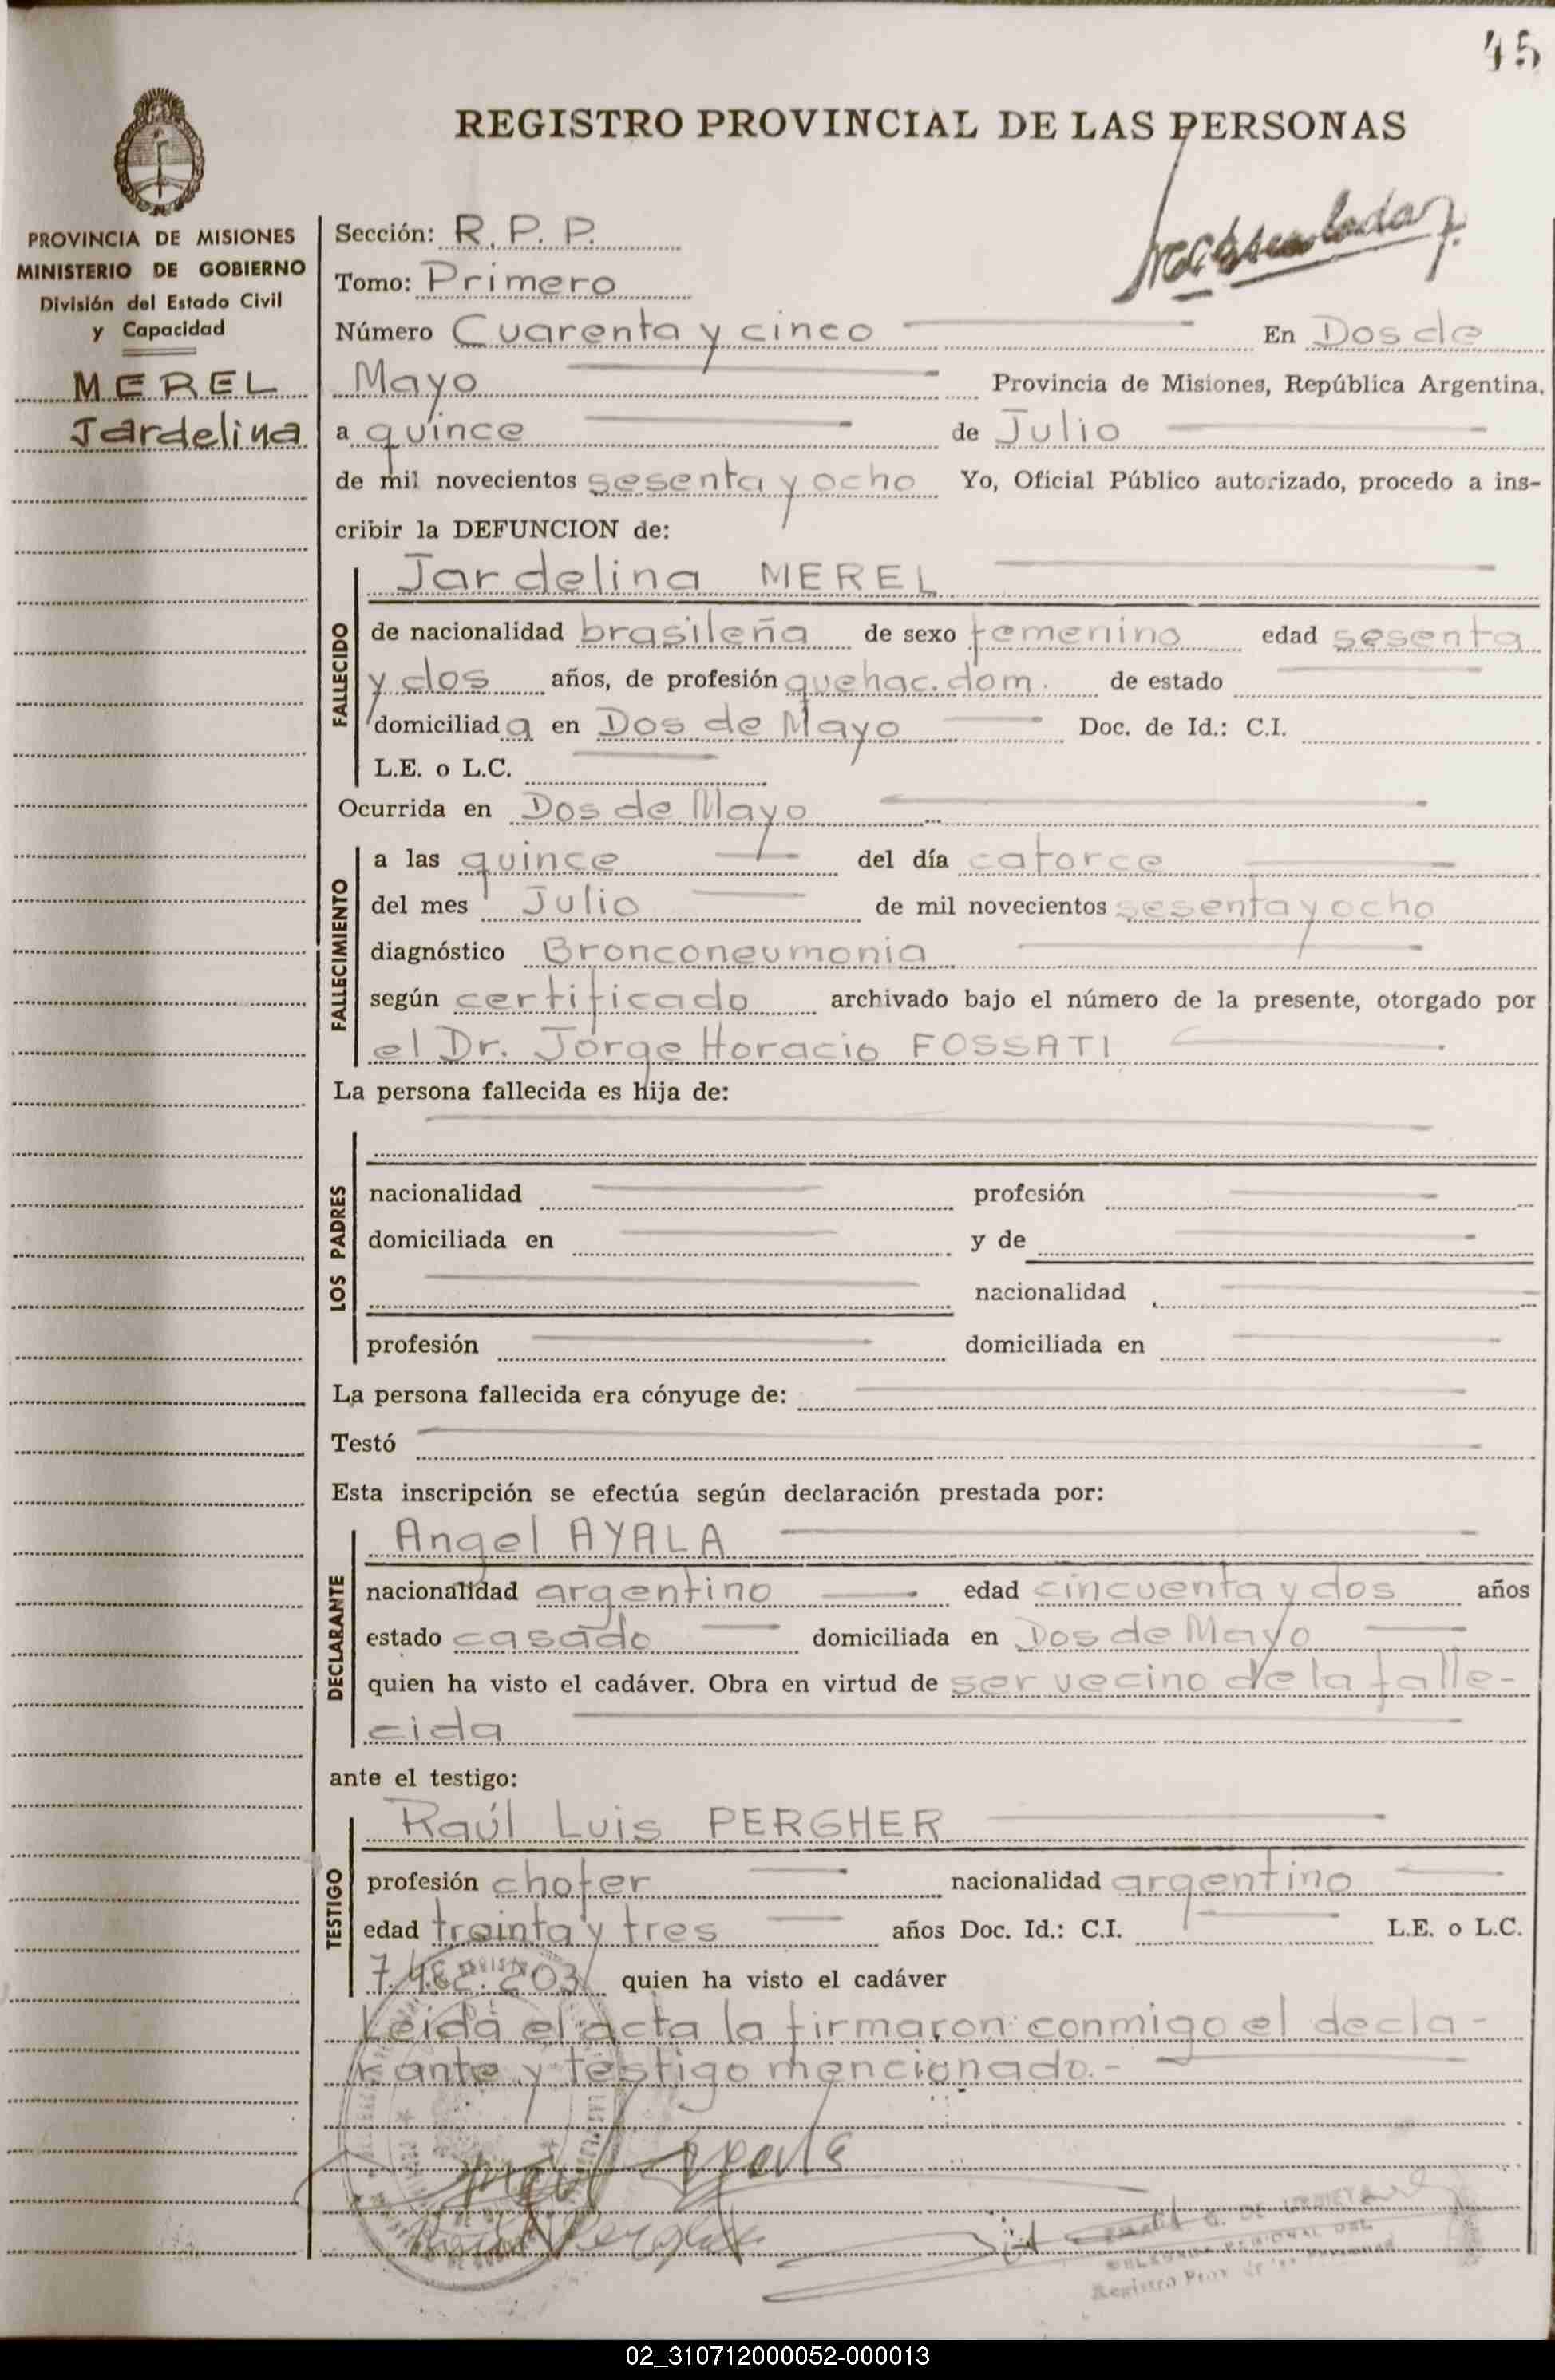 45
REGISTRO PROVINCIAL DE LAS PERSONAS
PROVINCIA DE MISIONES
MINISTERIO DE GOBIERNO
División del Estado Civil
y Capacidad
MEREL
Jardelina
Sección: R.P.P.
Tomo: Primero
Número Cuarenta y cinco En Dos de
Mayo Provincia de Misiones, República Argentina,
a quince de Julio
de mil novecientos sesenta y ocho Yo, Oficial Público autorizado, procedo a ins-
cribir la DEFUNCION de:
FALLECIDO
Jardelina MEREL
de nacionalidad brasileña de sexo femenino edad sesenta
y dos años, de profesión quehac. dom. de estado
domiciliada en Dos de Mayo Doc. de Id.: C.I.
L.E. o L.C.
Ocurrida en Dos de Mayo
FALLECIMIENTO
a las quince del día catorce
del mes Julio de mil novecientos sesenta y ocho
diagnóstico Bronconeumonia
según certificado archivado bajo el número de la presente, otorgado por
el Dr. Jorge Horacio FOSSATI
La persona fallecida es hija de:
LOS PADRES
nacionalidad profesión
domiciliada en y de
nacionalidad
profesión domiciliada en
La persona fallecida era cónyuge de:
Testó
Esta inscripción se efectúa según declaración prestada por:
DECLARANTE
Angel AYALA
nacionalidad argentino edad cincuenta y dos años
estado casado domiciliada en Dos de Mayo
quien ha visto el cadáver. Obra en virtud de ser vecino de la falle-
cida
ante el testigo:
TESTIGO
Raúl Luis PERGHER
profesión chofer nacionalidad argentino
edad treinta y tres años Doc. Id.: C.I. L.E. o L.C.
7.482.203 quien ha visto el cadáver
Leida el acta la firmaron conmigo el decla-
rante y testigo mencionado.-
02_310712000052-000013